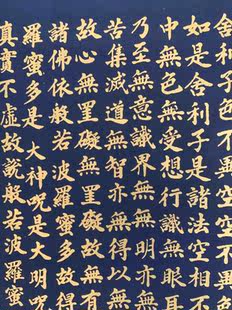 舍利子色不異空空不異色
如是舍利子是諸法空相不
中無色無受想行識無眼耳
乃至無意識界無無明亦無
苦集滅道無智亦無得以無
故心無罣礙無罣礙故無有
諸佛依般若波羅蜜多故得
羅蜜多是大神呪是大明呪
真實不虛故說般若波羅蜜